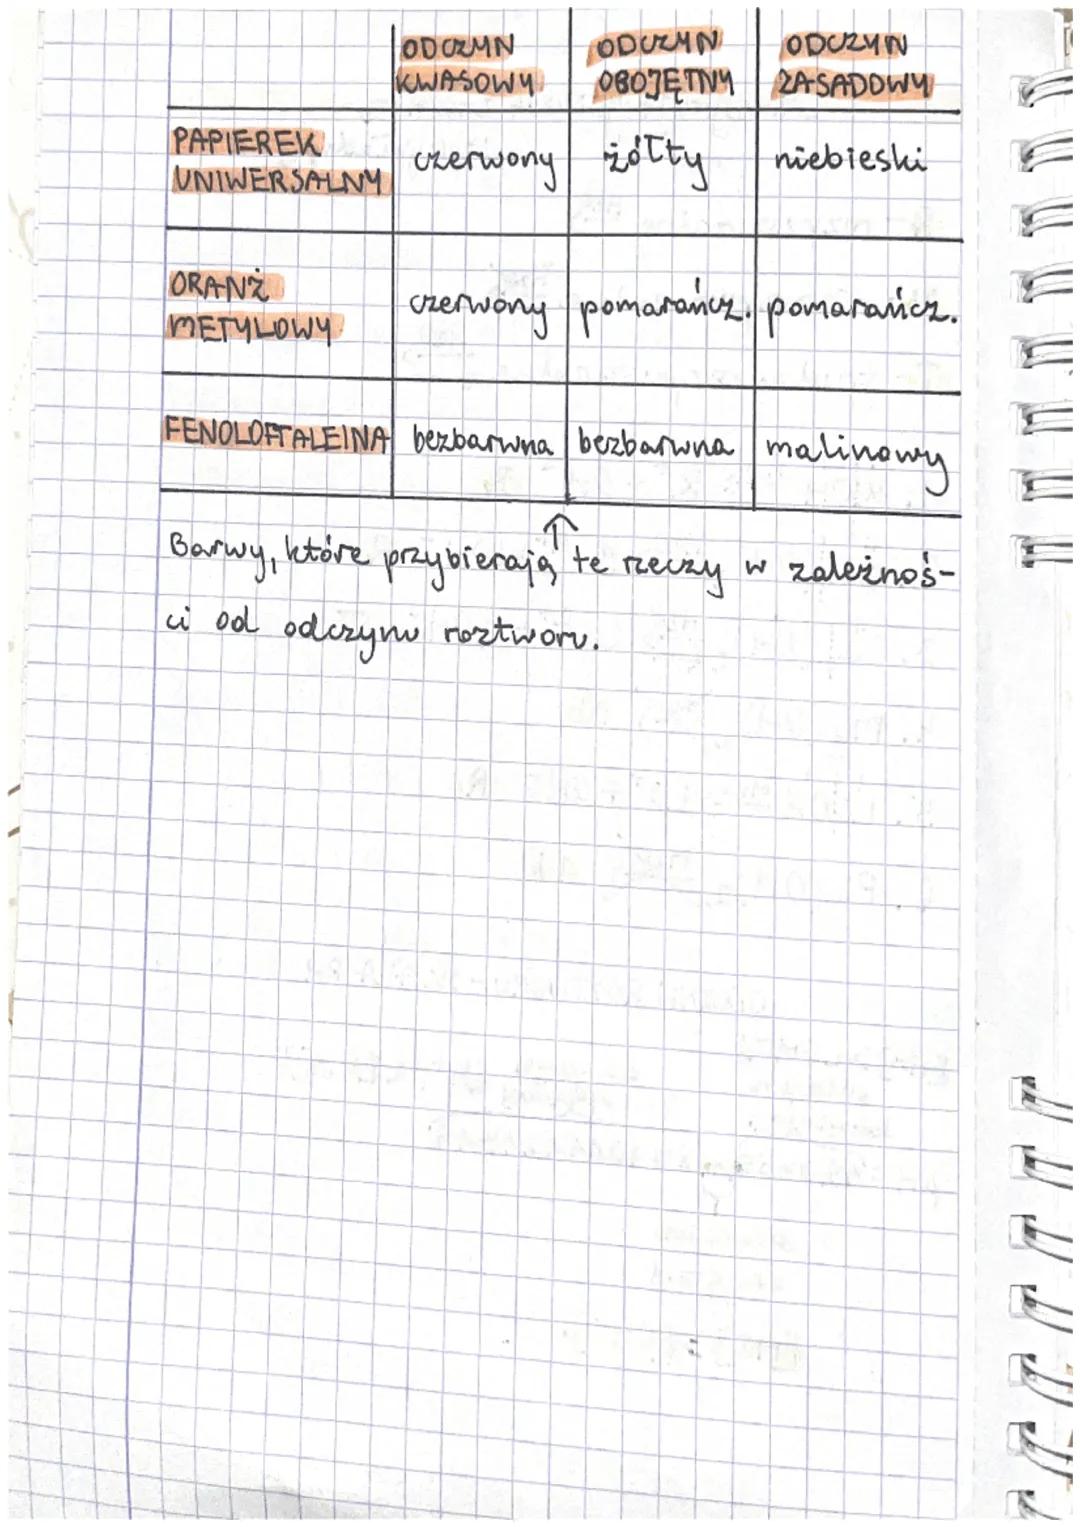 ODCZYN ODCZYN ODCZYN
KWASOWY OBOJĘTNY ZASADOWY
PAPIEREK
UNIWERSALNY czerwony żółty niebieski
ORANŻ
METYLOWY czerwony pomarańcz. pomarańcz.
FENOLOFTALEINA bezbarwna bezbarwna malinowy
Barwy, które przybierają te rzeczy w zależnoś-
ci od odczynu roztworu.